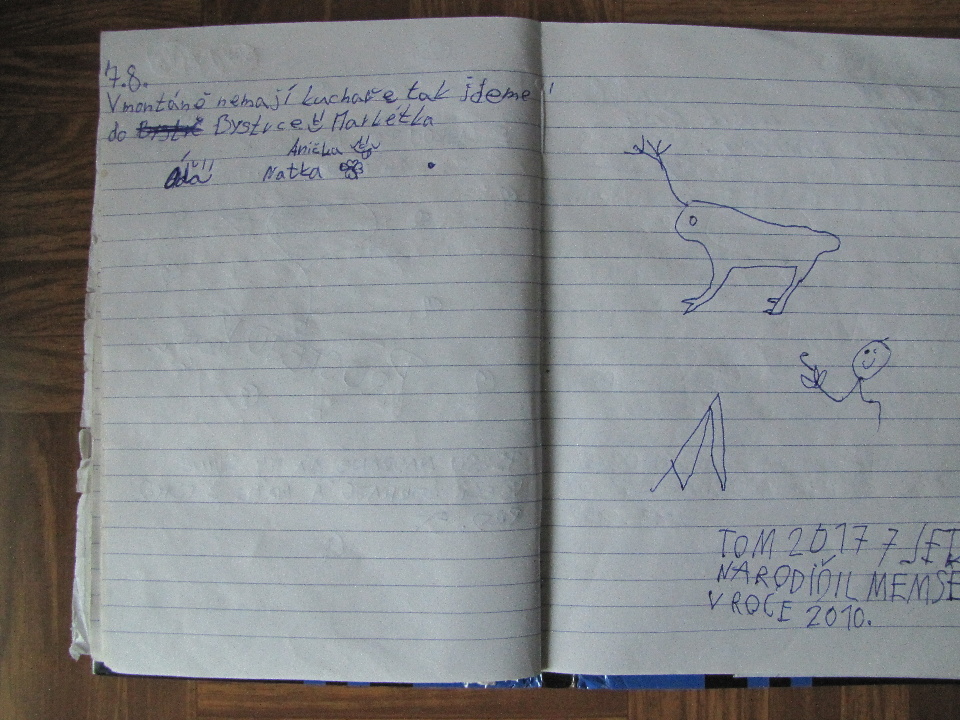 7.8.
V montáně nemají kuchaře tak jdeme
do Bystřice Markétka
Anička
Natka
TOM 2017 7 LET
NARODIL MEM SE
V ROCE 2010.